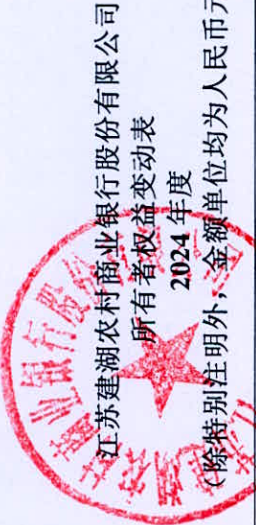 江苏建湖农村商业银行股份有限公司
所有者权益变动表
2024 年度
（除特别注明外，金额单位均为人民币元
业银行股